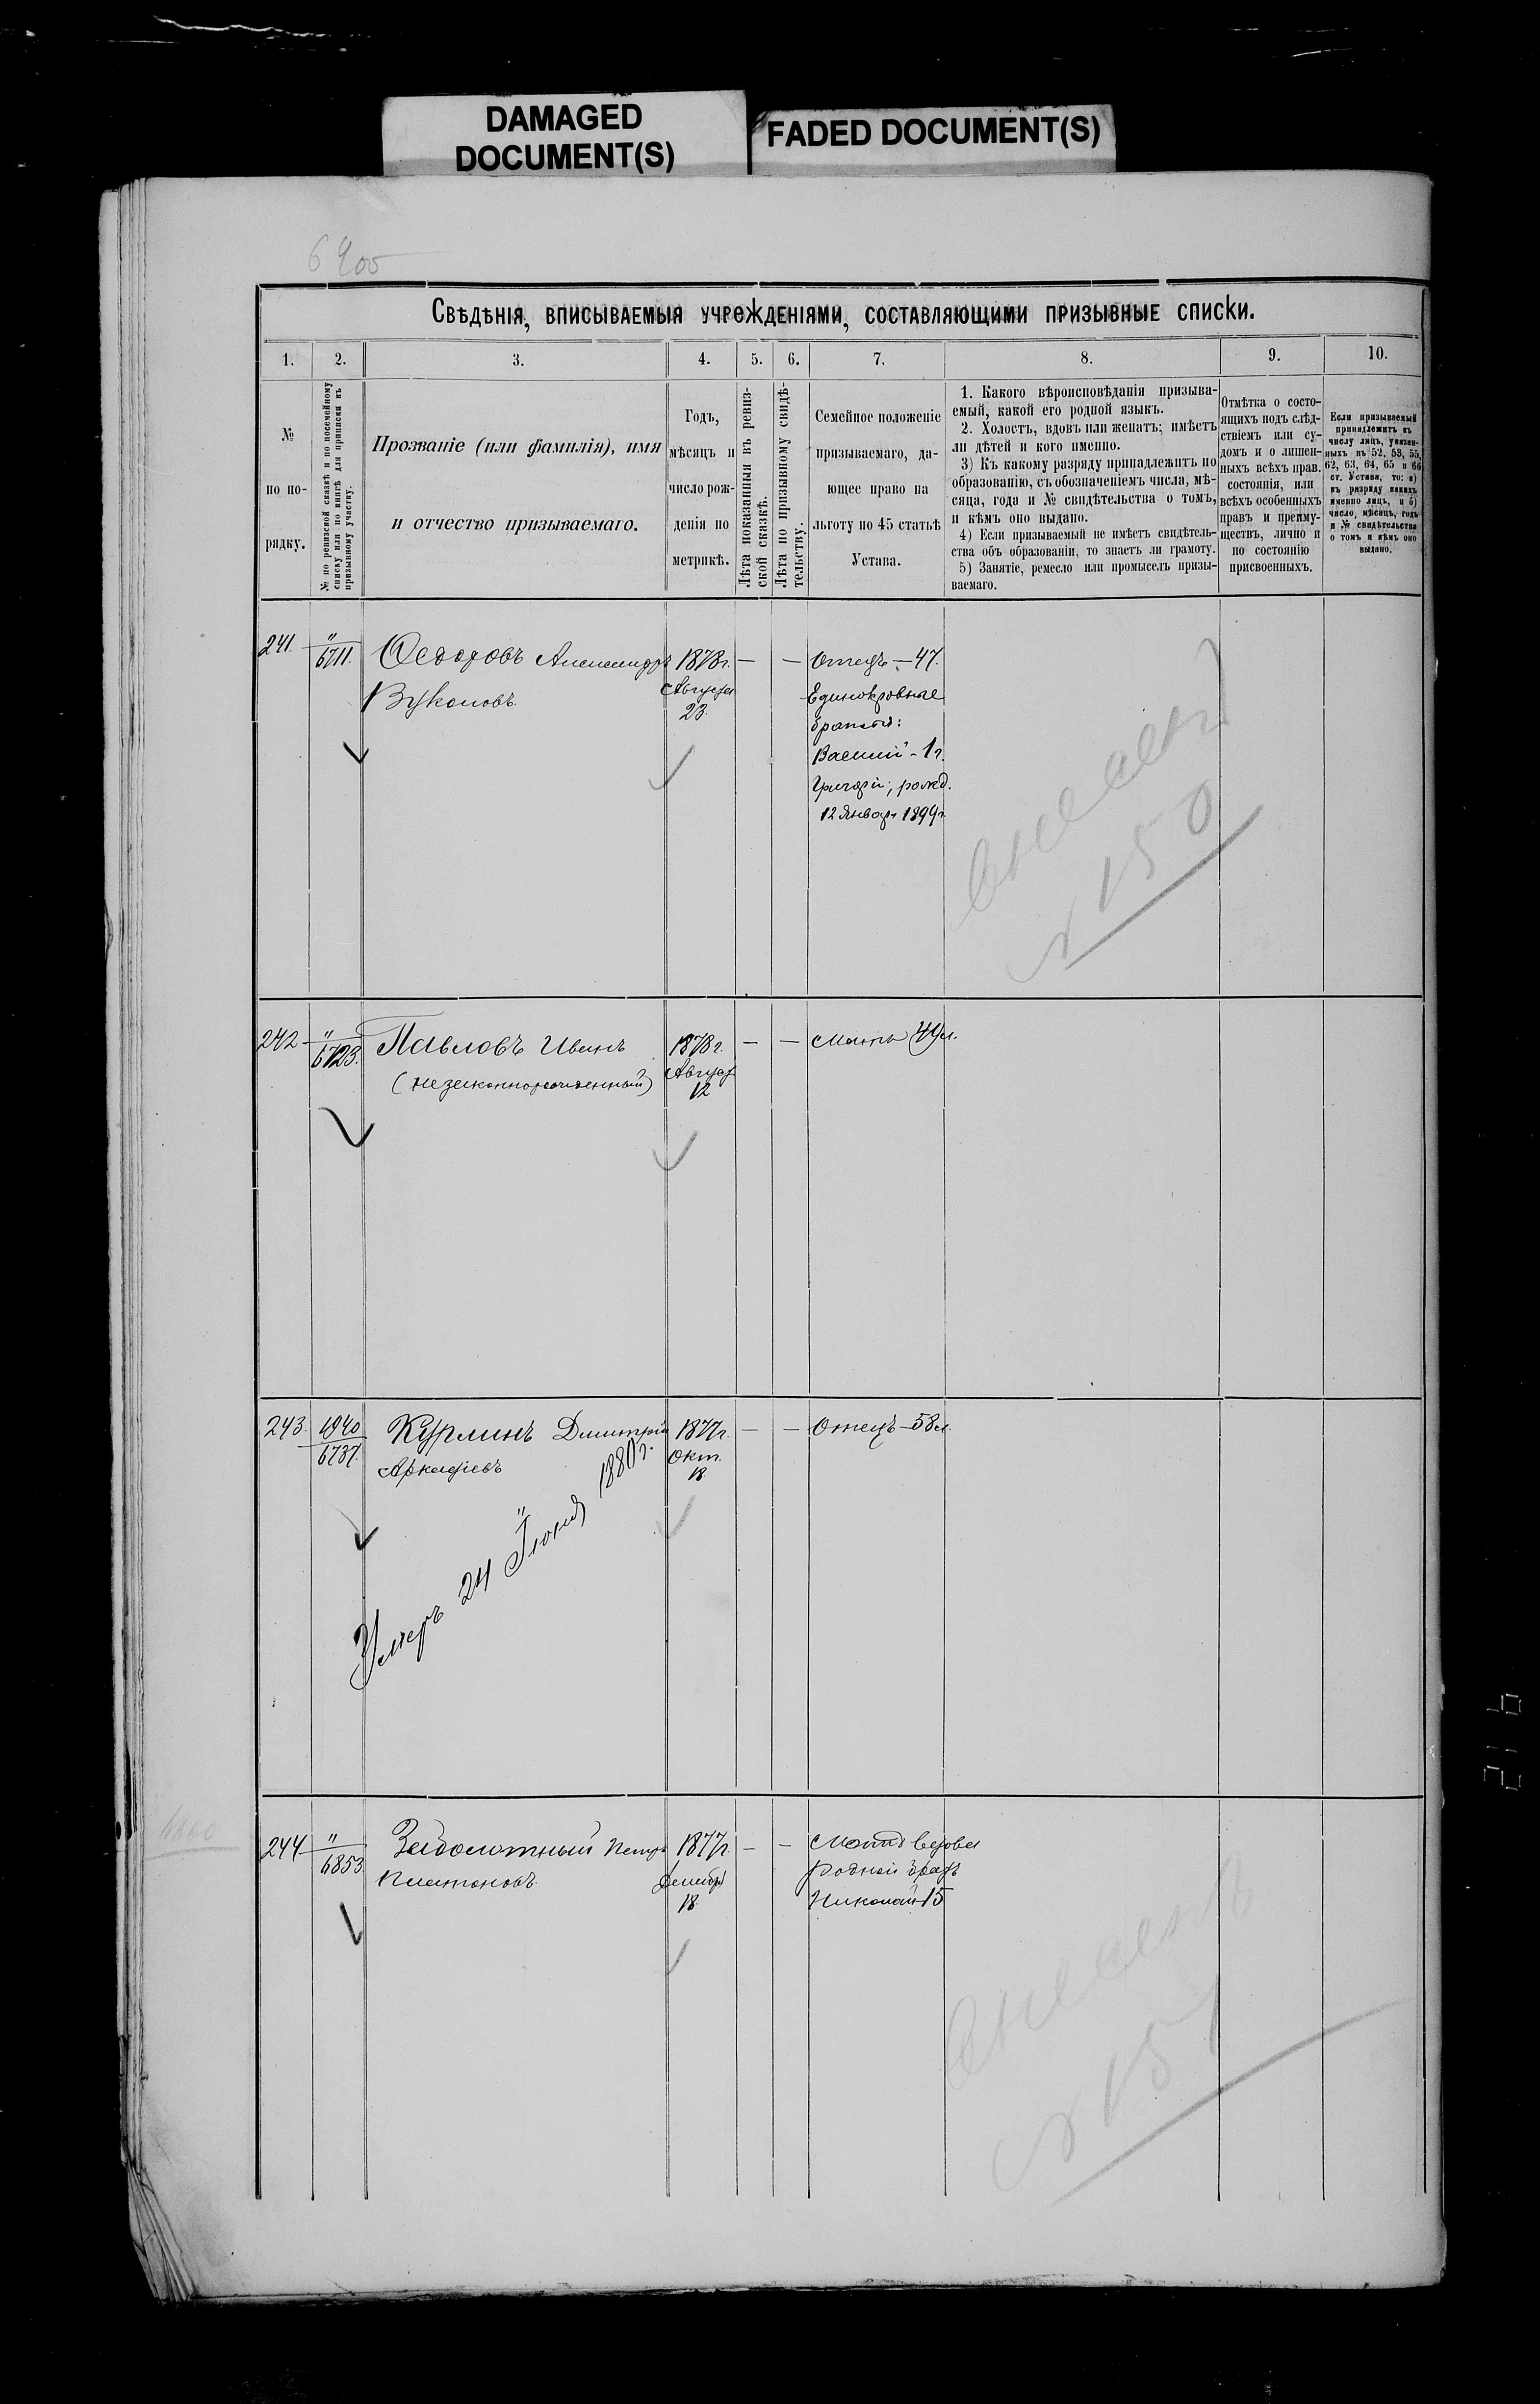 DAMAGED
DOCUMENT(S)
FADED DOCUMENT(S)
Свѣдѣнія, вписываемыя учрежденіями, составляющими призывные списки.
1. 2. 3. 4. 5. 6. 7. 8. 9. 10.
№
по по-
рядку.
№ по ревизской сказкѣ и по посемейному
списку или по книгѣ для приписки къ
призывному участку.
Прозваніе (или фамилія), имя
и отчество призываемаго.
Годъ,
мѣсяцъ и
число рож-
денія по
метрикѣ.
Лѣта показанныя въ ревиз-
ской сказкѣ.
Лѣта по призывному свидѣ-
тельству.
Семейное положеніе
призываемаго, да-
ющее право на
льготу по 45 статьѣ
Устава.
1. Какого вѣроисповѣданія призыва-
емый, какой его родной языкъ.
2. Холостъ, вдовъ или женатъ; имѣетъ
ли дѣтей и кого именно.
3) Къ какому разряду принадлежитъ по
образованію, съ обозначеніемъ числа, мѣ-
сяца, года и № свидѣтельства о томъ,
и кѣмъ оно выдано.
4) Если призываемый не имѣетъ свидѣтель-
ства объ образованіи, то знаетъ ли грамоту.
5) Занятіе, ремесло или промыселъ призы-
ваемаго.
Отмѣтка о состо-
ящихъ подъ слѣд-
ствіемъ или су-
домъ и о лишен-
ныхъ всѣхъ прав.
состоянія, или
всѣхъ особенныхъ
правъ и преиму-
ществъ, лично и
по состоянію
присвоенныхъ.
Если призываемый
принадлежитъ къ
числу лицъ, указан-
ныхъ въ 52, 53, 55,
62, 63, 64, 65 и 66
ст. Устава, то: а)
къ разряду какихъ
именно лицъ, и б)
число, мѣсяцъ, годъ
и № свидѣтельства
о томъ и кѣмъ оно
выдано.
241. " 6711. Ѳедоровъ Александръ 1878г. — — Отецъ — 47.
Вуколовъ. Августа Единокровные
23. братья:
Василій - 1 г.
Григорій, рожд.
12 Января 1899г.
№ 150
242 " 6723. Павловъ Иванъ 1878г. — — Мать 49л.
(незаконнорожденный) Август
12
243. 4940 6737. Курлинъ Дмитрій 1877г. — — Отецъ — 58л.
Аркадіевъ Окт.
18
Умеръ 24 Іюня 1880г.
244 " 6853 Заболотный Петръ 1877г. — — Мать вдова
Платоновъ. Декабря родной братъ
18. Николай 15
№ 151
216